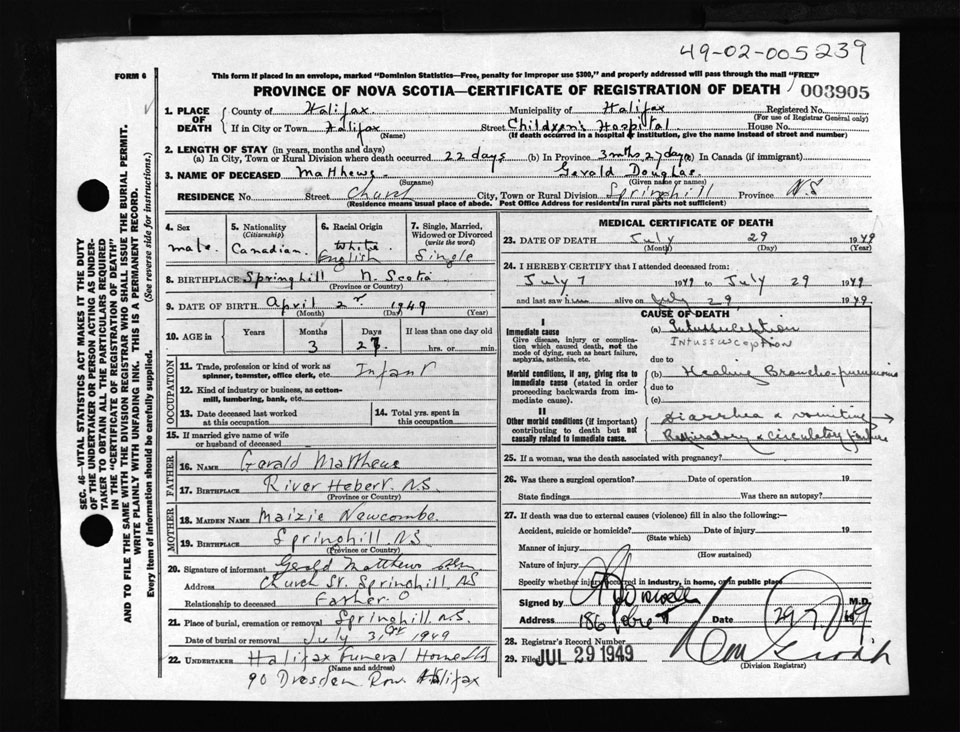 49-02-005239
FORM 6
This form if placed in an envelope, marked "Dominion Statistics—Free, penalty for improper use $300," and properly addressed will pass through the mail "FREE"
PROVINCE OF NOVA SCOTIA—CERTIFICATE OF REGISTRATION OF DEATH 003905
SEC. 46—VITAL STATISTICS ACT MAKES IT THE DUTY
OF THE UNDERTAKER OR PERSON ACTING AS UNDER-
TAKER TO OBTAIN ALL THE PARTICULARS REQUIRED
IN THE "CERTIFICATE OF REGISTRATION OF DEATH"
AND TO FILE THE SAME WITH THE DIVISION REGISTRAR WHO SHALL ISSUE THE BURIAL PERMIT.
WRITE PLAINLY WITH UNFADING INK. THIS IS A PERMANENT RECORD.
Every item of information should be carefully supplied. (See reverse side for instructions.)
1. PLACE OF DEATH
County of Halifax Municipality of Halifax Registered No.
(For use of Registrar General only)
If in City or Town Halifax Street Children's Hospital House No.
(Name) (If death occurred in a hospital or institution, give the name instead of street and number)
2. LENGTH OF STAY (in years, months and days)
(a) In City, Town or Rural Division where death occurred 22 days (b) In Province 3 mths, 27 days (c) In Canada (if immigrant)
3. NAME OF DECEASED Matthews Gerald Douglas
(Surname) (Given name or names)
RESIDENCE No. Street Church City, Town or Rural Division Springhill Province N.S
(Residence means usual place of abode. Post Office Address for residents in rural parts not sufficient)
4. Sex
male
5. Nationality
(Citizenship)
Canadian
6. Racial Origin
White
English
7. Single, Married,
Widowed or Divorced
(write the word)
Single
8. BIRTHPLACE Springhill N. Scotia
(Province or Country)
9. DATE OF BIRTH April 2 1949
(Month) (Day) (Year)
10. AGE in
Years Months Days If less than one day old
3 27 hrs. or min.
OCCUPATION
11. Trade, profession or kind of work as
spinner, teamster, office clerk, etc. Infant
12. Kind of industry or business, as cotton-
mill, lumbering, bank, etc.
13. Date deceased last worked
at this occupation
14. Total yrs. spent in
this occupation
15. If married give name of wife
or husband of deceased
FATHER
16. NAME Gerald Matthews
17. BIRTHPLACE River Hebert. N.S.
(Province or Country)
MOTHER
18. MAIDEN NAME Maizie Newcombe
19. BIRTHPLACE Springhill N.S.
(Province or Country)
20. Signature of informant Gerald Matthews
Address Church St. Springhill N.S
Relationship to deceased Father
21. Place of burial, cremation or removal Springhill N.S.
Date of burial or removal July 31st 1949
22. UNDERTAKER Halifax Funeral Home
(Name and address)
90 Dresden Row. Halifax
MEDICAL CERTIFICATE OF DEATH
23. DATE OF DEATH July 29 1949
(Month) (Day) (Year)
24. I HEREBY CERTIFY that I attended deceased from:
July 7 1949 to July 29 1949
and last saw him alive on July 29 1949
CAUSE OF DEATH
I
Immediate cause
Give disease, injury or complica-
tion which caused death, not the
mode of dying, such as heart failure,
asphyxia, asthenia, etc.
(a) Intussusception
Intussusception
due to
Morbid conditions, if any, giving rise to
immediate cause (stated in order
proceeding backwards from im-
mediate cause).
(b) Healing Broncho-pneumonia
due to
(c)
II
Other morbid conditions (if important)
contributing to death but not
causally related to immediate cause.
Diarrhea & vomiting
Respiratory & Circulatory failure
25. If a woman, was the death associated with pregnancy?
26. Was there a surgical operation? Date of operation 19
State findings Was there an autopsy?
27. If death was due to external causes (violence) fill in also the following:—
Accident, suicide or homicide? Date of injury 19
(State which)
Manner of injury
(How sustained)
Nature of injury
Specify whether injury occurred in industry, in home, or in public place
Signed by M.D.
Address 186 Date 29.7.1949
28. Registrar's Record Number
29. Filed JUL 29 1949
(Division Registrar)